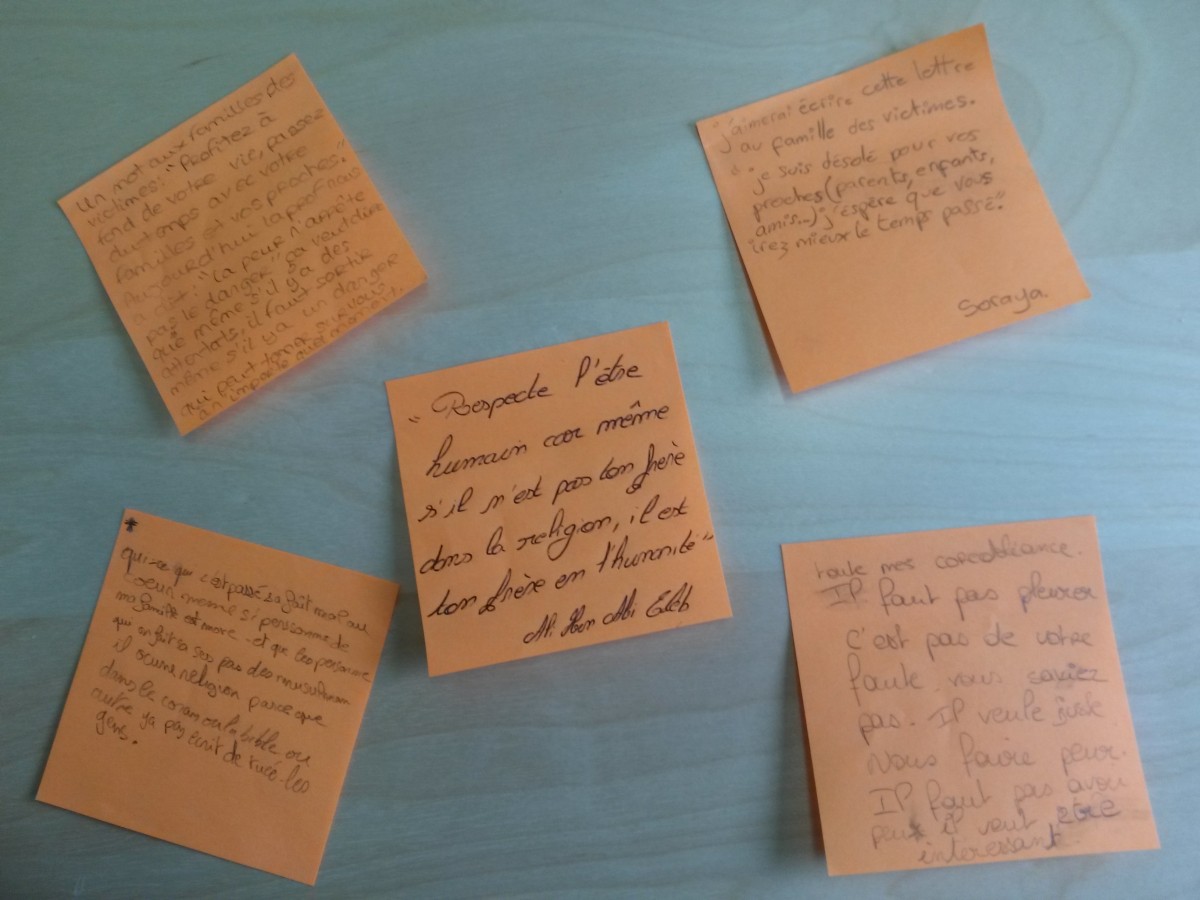 un mot aux familles des
victimes: "Profitez à
fond de votre vie, passez
du temps avec votre
familles et vos proches."
Aujourd'hui la prof nous
a dit: "La peur n'arrête
pas le danger" ça veut dire
que même s'il y a des
attentats, il faut sortir
même s'il y a un danger
qui peut tomer sur vous
an importe quel moment.
"j'aimerai écrire cette lettre
au famille des victimes.
je suis désolé pour vos
proches (parents, enfants,
amis...) j'espère que vous
irez mieux le temps passé."
Soraya.
"Respecte l'être
humain car même
s'il n'est pas ton frère
dans la religion, il est
ton frère en l'humanité"
Ali Ibn Abi Taleb
qui-ce qui c'est passé sa fait mal au
coeur même si persionne de
ma famille est more et que les persionne
qui on fait sa sus pas des musulman
il ocune réligion parce que
dans le coran ou la bible ou
autre ya pas écrit de tués les
gens.
toute mes
Il faut pas pleurer
c'est pas de votre
faute vous saviez
pas. Il veule juste
Nous faire peur.
Il faut pas avoir
peur il veut être
interessant.